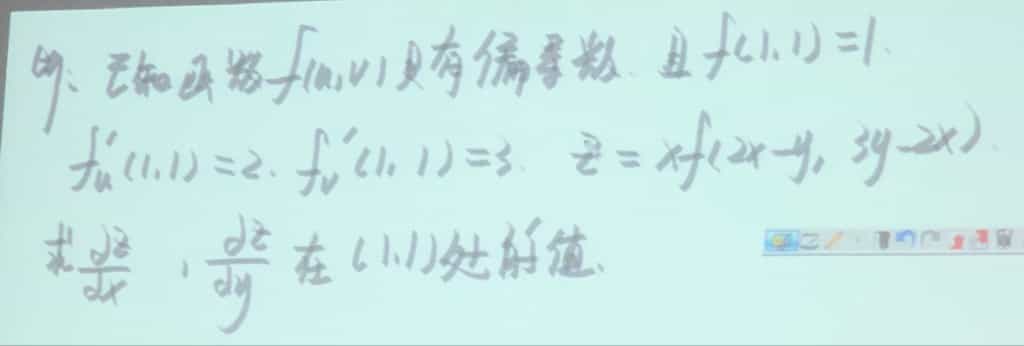 例: 已知函数f(u,v)具有偏导数. 且f(1,1)=1.
f'u(1,1)=2. f'v(1,1)=3. z=xf(2x-y, 3y-2x).
求dz/dx , dz/dy 在(1,1)处的值.